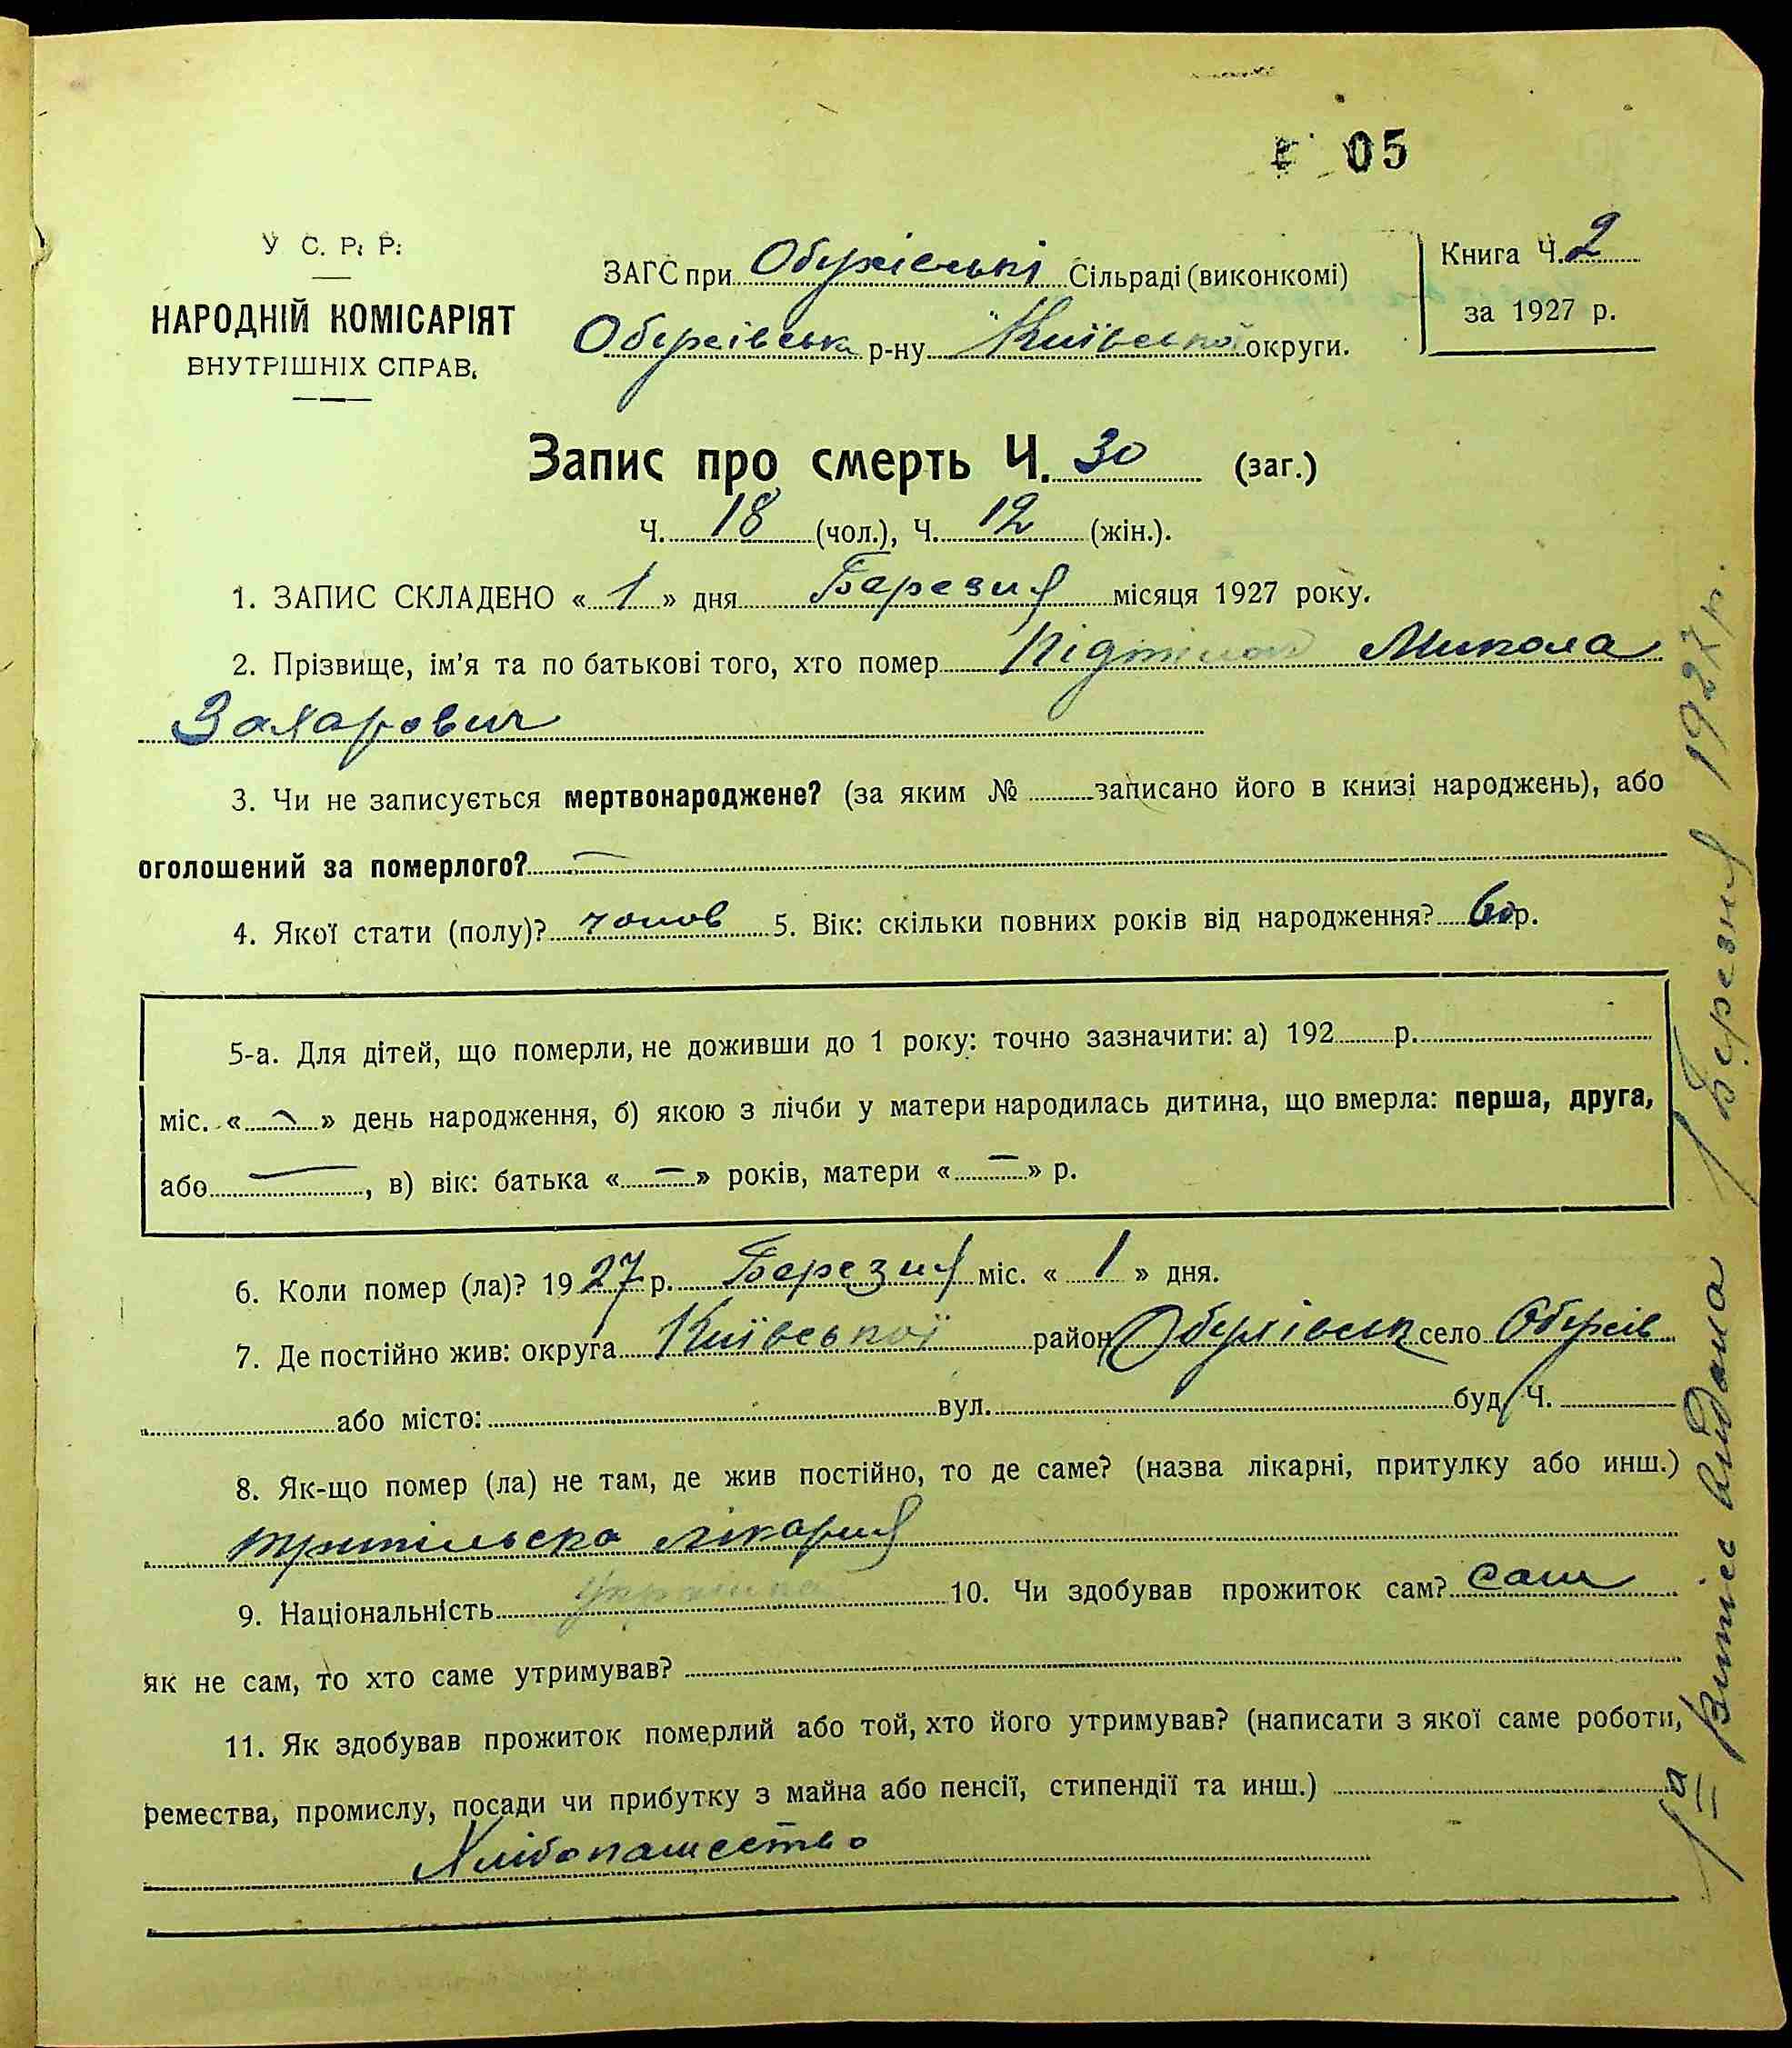 05
У С. Р. Р.
НАРОДНІЙ КОМІСАРІЯТ
ВНУТРІШНІХ СПРАВ.
ЗАГС при Обухівські Сільраді (виконкомі)
Обухівська р-ну Київської округи.
Книга Ч. 2
за 1927 р.
Запис про смерть Ч. 30 (заг.)
Ч. 18 (чол.), Ч. 12 (жін.).
1. ЗАПИС СКЛАДЕНО « 1 » дня Березня місяця 1927 року.
2. Прізвище, ім'я та по батькові того, хто помер Микола
Захарович
3. Чи не записується мертвонароджене? (за яким № записано його в книзі народжень), або
оголошений за померлого? —
4. Якої стати (полу)? чолов 5. Вік: скільки повних років від народження? 60 р.
5-а. Для дітей, що померли, не доживши до 1 року: точно зазначити: а) 192 р.
міс. « — » день народження, б) якою з лічби у матери народилась дитина, що вмерла: перша, друга,
або — , в) вік: батька « — » років, матери « — » р.
6. Коли помер (ла)? 1927 р. Березня міс. « 1 » дня.
7. Де постійно жив: округа Київської район Обухівськ село Обухів
або місто: вул. буд. Ч.
8. Як-що помер (ла) не там, де жив постійно, то де саме? (назва лікарні, притулку або инш.)
Трипільска лікарня
9. Національність 10. Чи здобував прожиток сам? Сам
як не сам, то хто саме утримував?
11. Як здобував прожиток померлий або той, хто його утримував? (написати з якої саме роботи,
ремества, промислу, посади чи прибутку з майна або пенсії, стипендії та инш.)
Хлібопашество
1а Витпіс видана 1 Березня 1927 р.